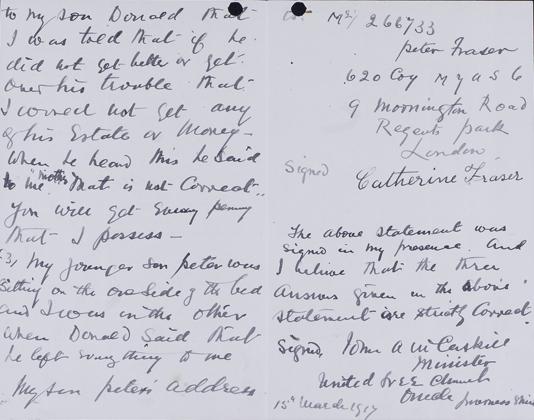 to my son Donald that
I was told that if he
did not get better or get
over his trouble that
I would not get any
of his Estate or Money –
when he heard this he said
to me "Mother that is not Correct"
You will get every penny
that I possess –
3, My younger son peter was
Sitting on the one side of the bed
and I was in the other
when Donald Said that
he left everything to me
My son peter's address
M2/ 266733
peter Fraser
620 Coy M
9 Moornington Road
Regents park
London
Signed
Catherine Fraser
The above statement was
signed in my presence. And
I believe that the three
answers given in the above
statement are strictly Correct.
Signed, John A McCaskill
Minister
United Free Church
15th March 1917